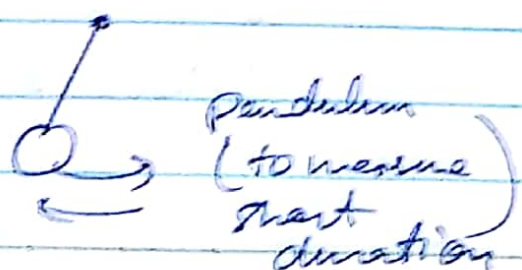 pendulum
(to measure
short
duration)